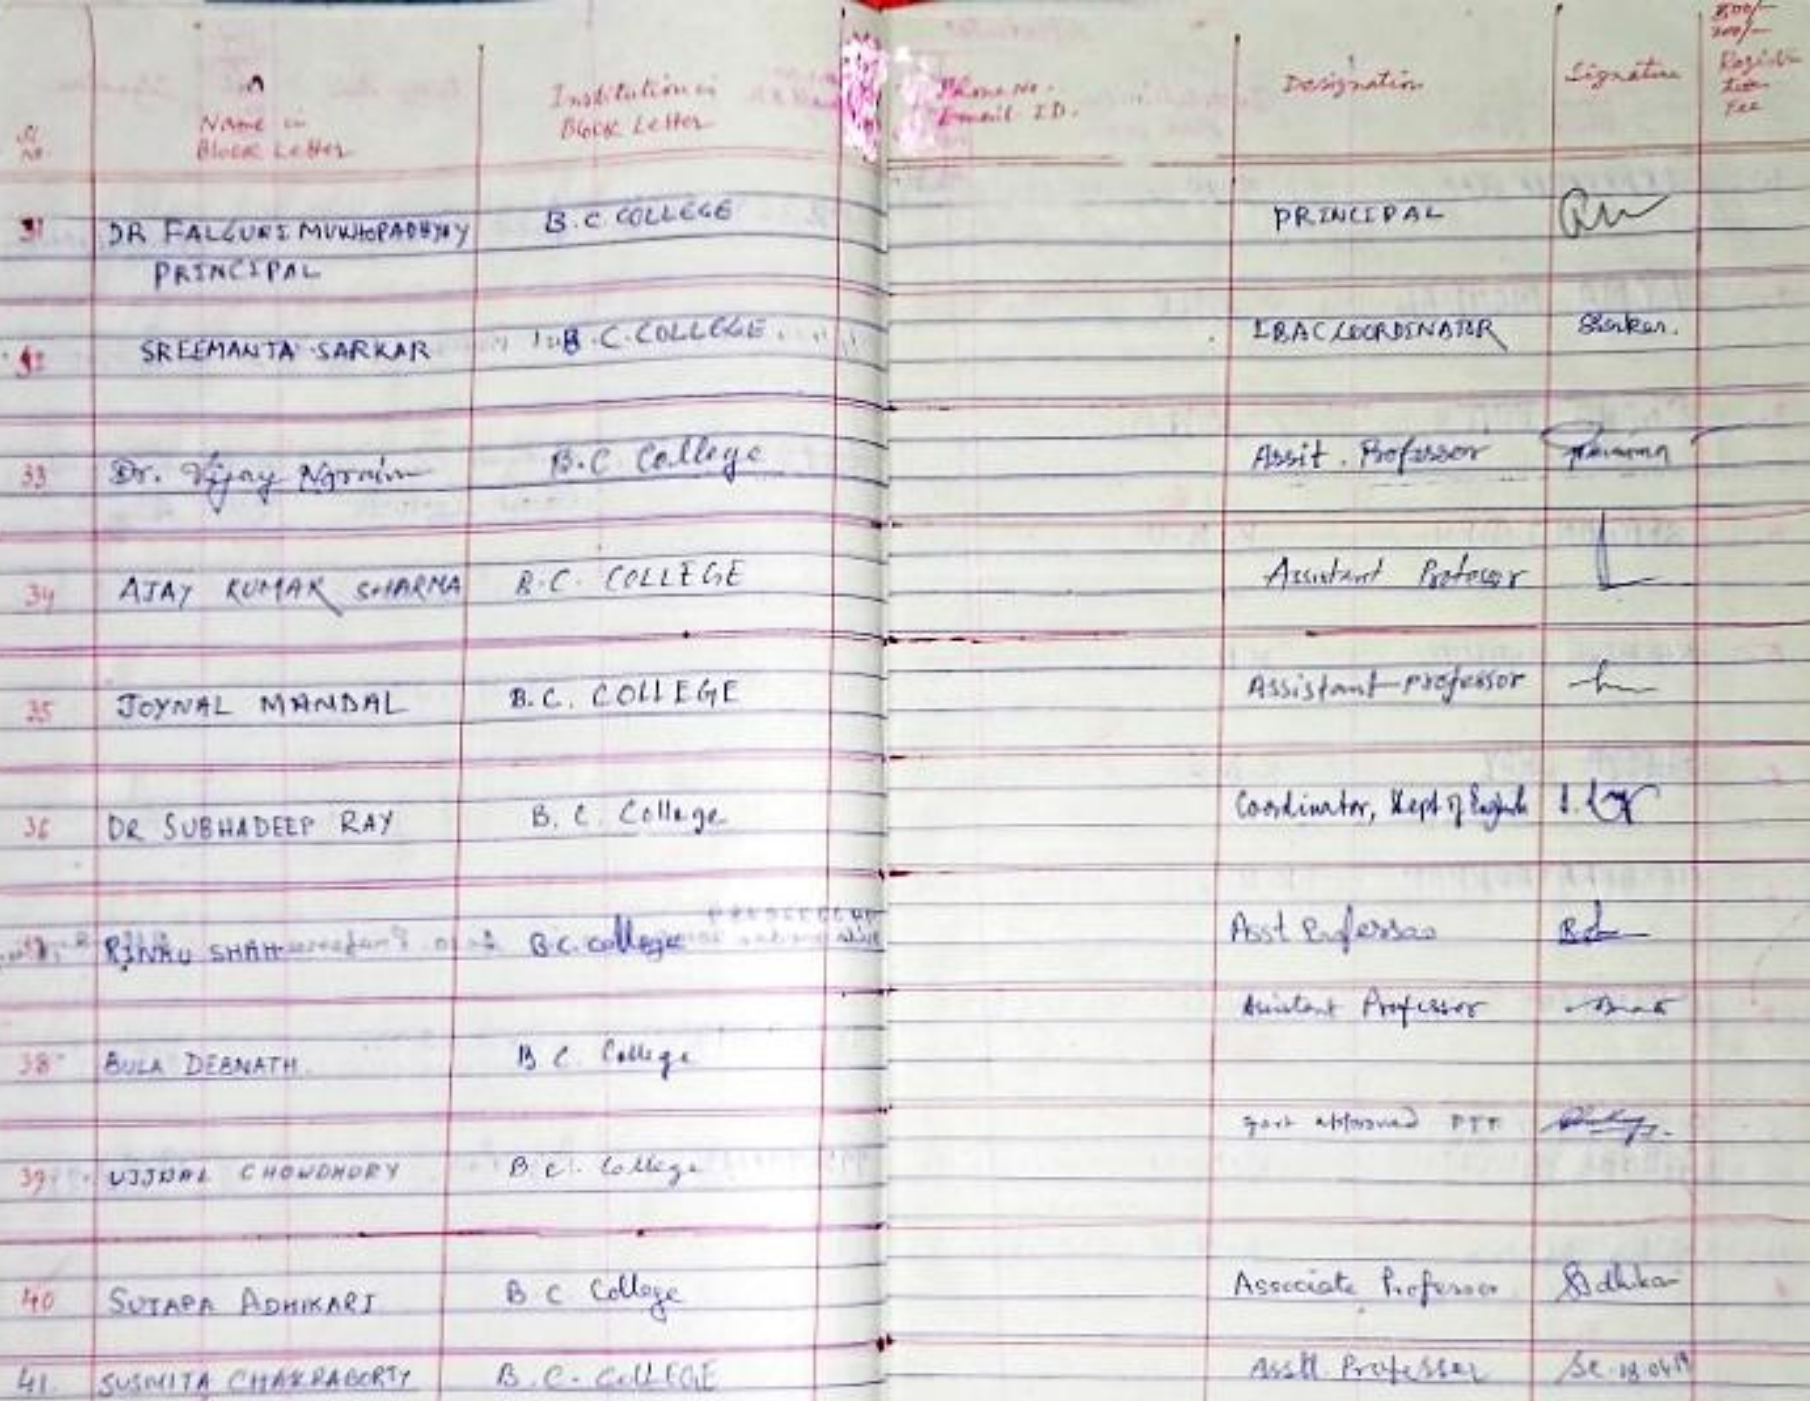 Sl. No.
Name in Block Letter
Institution in Block Letter
Phone No. Email ID.
Designation
Signature
200/- Registration Fee
31 DR FALGUNI MUKHOPADHYAY B.C. COLLEGE PRINCIPAL
PRINCIPAL
32 SREEMANTA SARKAR B.C. COLLEGE COORDINATOR Sarkar.
33 Dr. Vijay Narain B.C. College Assit. Professor
34 AJAY KUMAR SHARMA B.C. COLLEGE Assistant Professor
35 JOYNAL MANDAL B.C. COLLEGE Assistant professor
36 DR SUBHADEEP RAY B. C. College Coordinator, Dept of English
37 RINKU SHAH B.C. College Asst Professor
Assistant Professor
38 BULA DEBNATH. B C. College
Govt approved PTT
39 UJJWAL CHOWDHURY B.C. College
40 SUTAPA ADHIKARI B C College Associate Professor Adhikari
41. SUSMITA CHAKRABORTY B.C. COLLEGE Asstt. Professor SC. 18.04.19